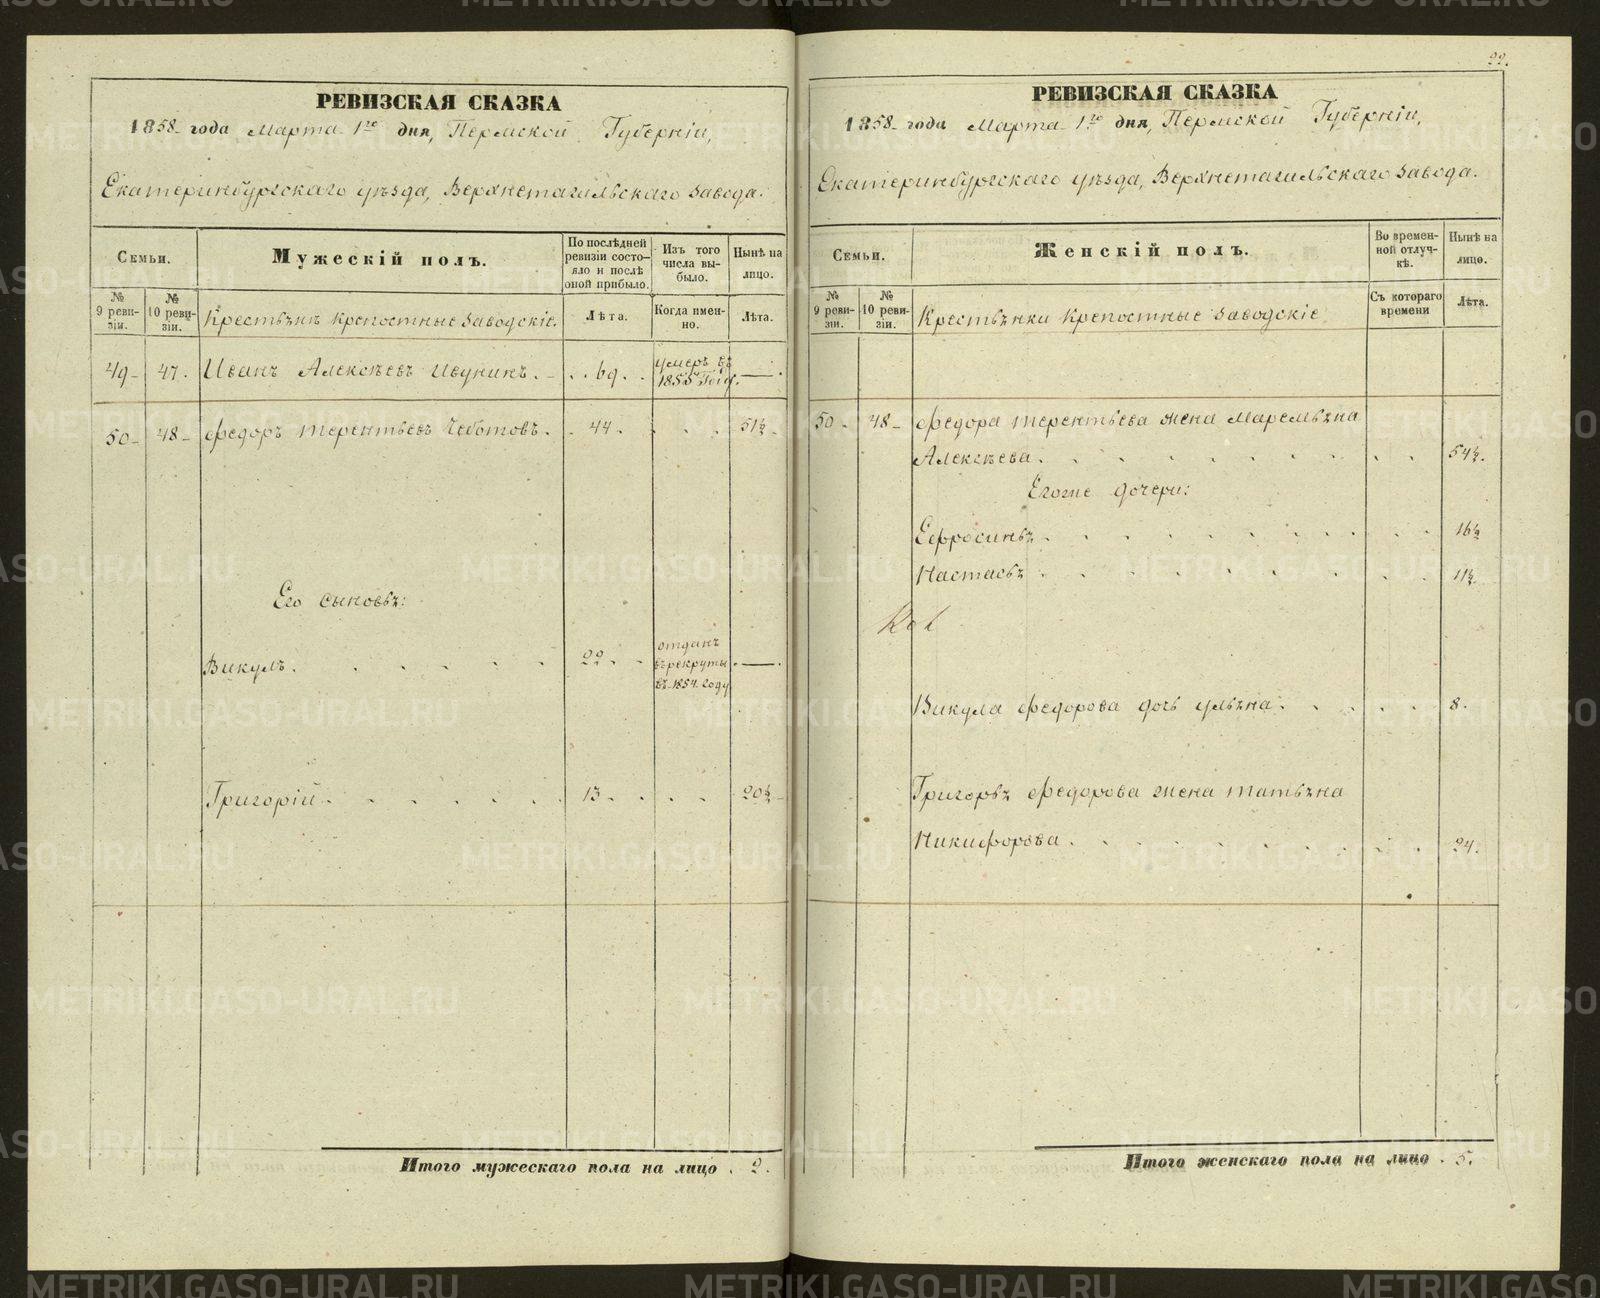 22.
РЕВИЗСКАЯ СКАЗКА
1858 года Марта 1го дня, Пермской Губерніи,
Екатеринбургскаго уѣзда, Верхнетагильскаго завода.
Семьи.
Мужескій полъ.
По послѣдней ревизіи состояло и послѣ оной прибыло.
Изъ того числа выбыло.
Нынѣ на лицо.
№ 9 ревизіи.
№ 10 ревизіи.
Крестьянъ крепостные заводскіе.
Лѣта.
Когда именно.
Лѣта.
49 47. Иванъ Алексѣевъ Ивунинъ. 69. умеръ въ 1855 году. —
50 48 Федоръ Терентьевъ Чеботовъ. 44. 51½
Его сыновья:
Викулъ. 22. отданъ въ рекруты въ 1854 году —
Григорій. 13. 20½
Итого мужескаго пола на лицо. 2.
РЕВИЗСКАЯ СКАЗКА
1858 года Марта 1го дня, Пермской Губерніи,
Екатеринбургскаго уѣзда, Верхнетагильскаго завода.
Семьи.
Женскій полъ.
Во временной отлучкѣ.
Нынѣ на лицо.
№ 9 ревизіи.
№ 10 ревизіи.
Крестьянки крепостные заводскіе
Съ котораго времени
Лѣта.
50. 48 Федора Терентьева жена Маремьяна
Алексѣева. 54½.
Егоже дочери:
Ефросинья 16½
Настасья 11½.
Викула Федорова дочь Ульяна. 8.
Григорья Федорова жена Татьяна
Никифорова. 24.
Итого женскаго пола на лицо. 5.
METRIKI.GASO-URAL.RU